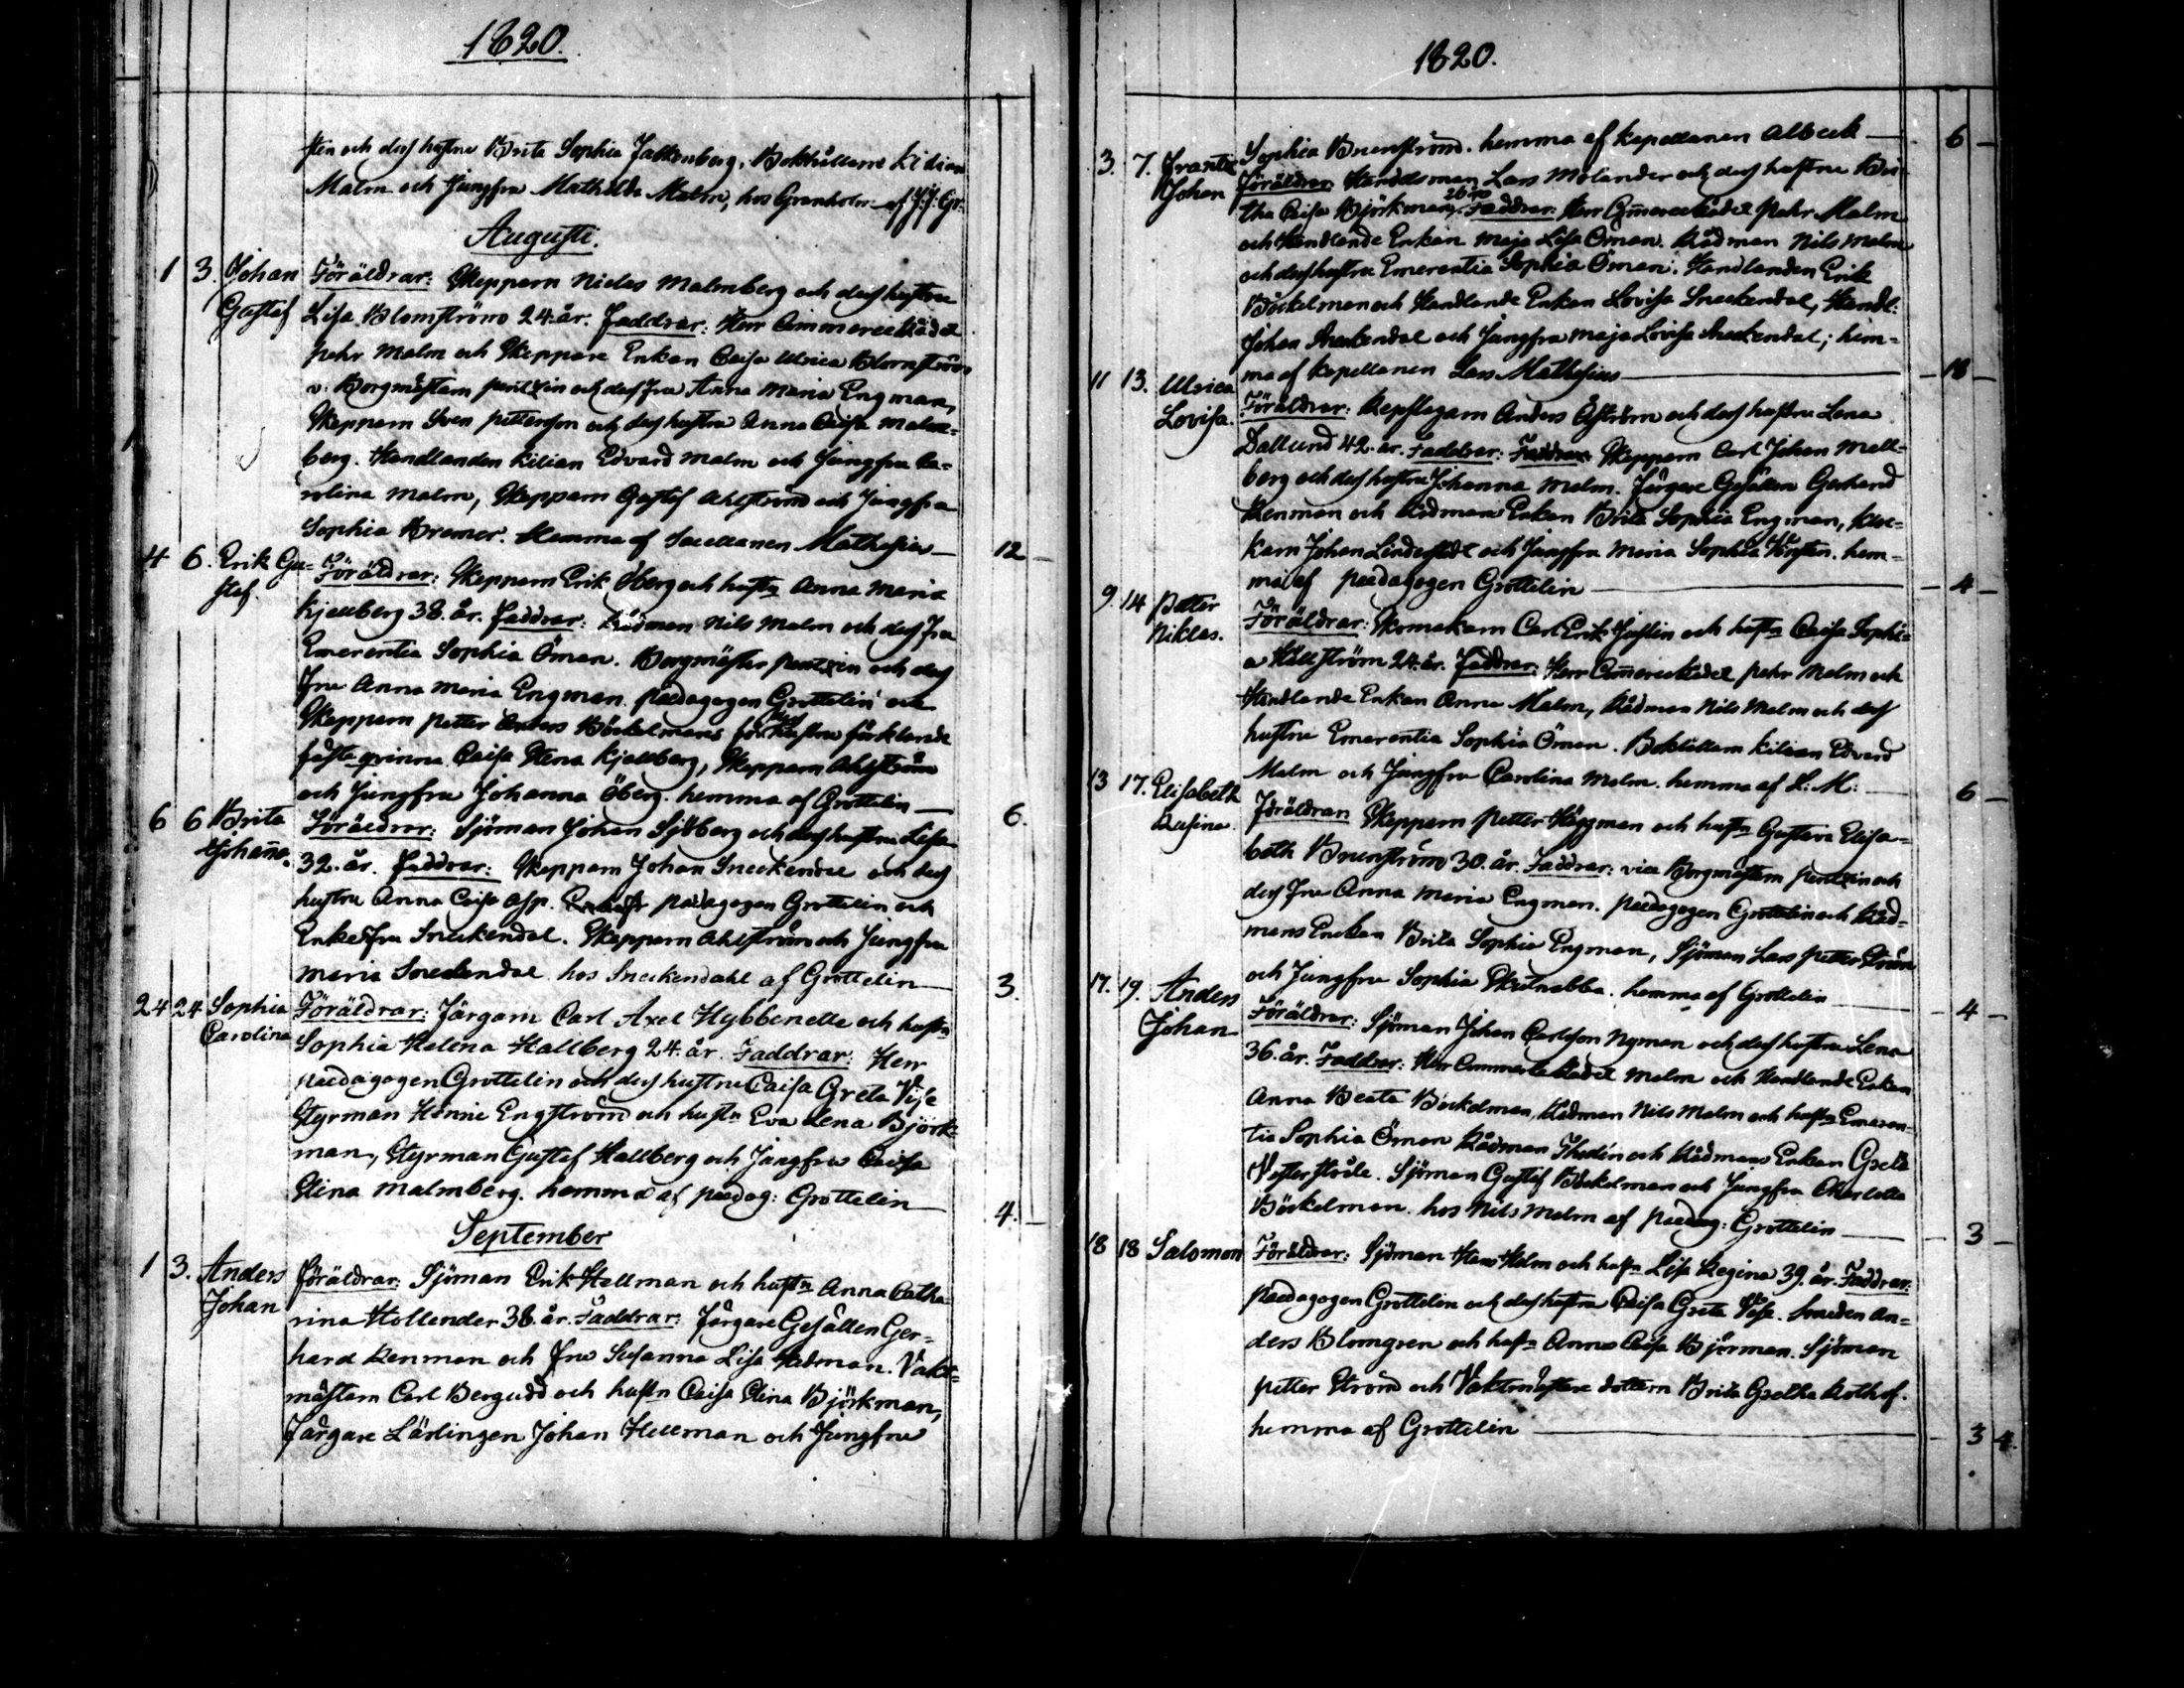 1820.
sten och dess hustru Brita Sophia Falkenberg, Bokhållarne Kilian
Malm och Jungfru Mathilda Malm, hos Granholm af J: J: Gr:
Augusti.
1 3. Johan Gustaf
Föräldrar: Skepparn Niclas Malmberg och dess hustru
Lisa Blomström 24. år. Faddrar: Herr Commercerådet
Pehr Malm och Skeppare Enkan Caisa Ulrica Blomström
v. Borgmästarn Pentzin och dess Fru Anna Maria Engman,
Skepparn Sven Petterson och dess hustru Anna Caisa Malm=
berg. Handlanden Kilian Edvard Malm och Jungfru Ca=
rolina Malm, Skepparn Gustaf Ahlström och Jungfru
Sophia Bremer. Hemma af Sacellanen Mathesius 12
4 6. Erik Gu= staf.
Föräldrar: Skepparn Erik Öberg och hustn Anna Maria
Kjellberg 38. år. Faddrar: Rådman Nils Malm och dess Fru
Emerentia Sophia Öman. Borgmäster Pentzin och dess
Fru Anna Maria Engman. Pædagogen Grottelin och
Skepparn Petter Anders Böckelmans hustru förklarade
fästeqvinna Caisa Stina Kjellberg, Skepparn Ahlström
och Jungfru Johanna Öberg. hemma af Grottelin 6.
6 6 Brita Johaña.
Föräldrar: Sjöman Johan Sjöberg och dess hustru Lisa
32. år. Faddrar: Skepparn Johan Sneckendal och dess
hustru Anna Caisa Asp. Pædagogen Grottelin och
Enkefru Sneckendal. Skepparn Ahlström och Jungfru
Maria Sneckendal hos Sneckendahl af Grottelin 3.
24 24 Sophia Carolina
Föräldrar: Färgarn Carl Axel Hybbenette och hustn
Sophia Helena Hallberg 24. år. Faddrar: Herr
Pædagogen Grottelin och dess hustru Caisa Greta Vise
Styrman Hinric Engström och hustn Eva Lena Björk=
man, Styrman Gustaf Hallberg och Jungfru Caisa
Stina Malmberg. hemma af pædag: Grottelin 4.
September
1 3. Anders Johan
Föräldrar: Sjöman Erik Hellman och hustn Anna Catha=
rina Hollender 38. år. Faddrar: Färgare Gesällen Ger=
hard Renman och Fru Susanna Lisa Hedman. Vakt=
mästarn Carl Bergudd och hustn Caisa Stina Björkman,
Färgare Lärlingen Johan Hellman och Jungfru
1820.
Sophia Brunström. hemma af Kapellanen Albeck 6
3. 7. Frantz Johan
Föräldrar: Handelsman Lars Molander och dess hustru Bri=
tha Caisa Björkman 26 år. Faddrar: Herr Com̃ercerådet Pehr Malm
och Handlande Enkan Maja Lisa Öman. Rådman Nils Malm
och dess hustru Emerentia Sophia Öman. Handlanden Erik
Böckelman och Handlande Enkan Lovisa Sneckendal, Handl:
Johan Sneckendal och Jungfru Maja Lovisa Sneckendal; hem=
ma af Kapellanen Lars Mathesius 18
11 13. Ulrica Lovisa.
Föräldrar: Repslagarn Anders Åström och dess hustru Lena
Dallund 42. år. Faddrar: Faddrar: Skepparn Carl Johan Mell=
berg och dess hustru Johanna Malm. Färgare Gesällen Gerhard
Renman och Rådmans Enkan Brita Sophia Engman, Kloc=
karn Johan Linderstedt och Jungfru Maria Sophia hem=
ma af Pædagogen Grottelin 4
9. 14 Petter Niklas.
Föräldrar: Skomakarn Carl Erik Juslin och hustn Caisa Sophi=
a Hällström 24. år. Faddrar: Herr Com̃ercerådet Pehr Malm och
Handlande Enkan Anna Malm, Rådman Nils Malm och dess
hustru Emerentia Sophia Öman. Bokhållarn Kilian Edvard
Malm och Jungfru Carolina Malm. hemma af L: M: 6
13 17. Elisabeth Rusina.
Föräldrar: Skepparn Petter Häggman och hustn Gustava Elisa=
beth Brunström 30. år. Faddrar: vice Borgmästarn Pentzin och
dess Fru Anna Maria Engman. Pædagogen Grottelin och Råd=
mans Enckan Brita Sophia Engman, Sjöman Lars Petter Ström
och Jungfru Sophia Skutnabba. hemma af Grottelin 4
17. 19. Anders Johan
Föräldrar: Sjöman Johan Carlsson Nyman och dess hustru Lena
36. år. Faddrar: Herr Commercerådet Malm och Handlande Enkan
Anna Beata Böckelman, Rådman Nils Malm och hustn Emeren=
tia Sophia Öman Rådman Thodén och Rådmans Enkan Greta
Vesterstråle. Sjöman Gustaf Böckelman och Jungfru Charlotta
Böckelman. hos Nils Malm af Pædag: Grottelin 3
18 18 Salomon
Föräldrar: Sjöman Hans Holm och hustn Lisa Regina 39. år. Faddrar:
Pædagogen Grottelin och dess hustru Caisa Greta Vise. Smeden An=
ders Blomgren och hustn Anna Caisa Björman. Sjöman
Petter Ström och Vaktmästare dottern Brita Gretha Rothof.
hemma af Grottelin 3 4.